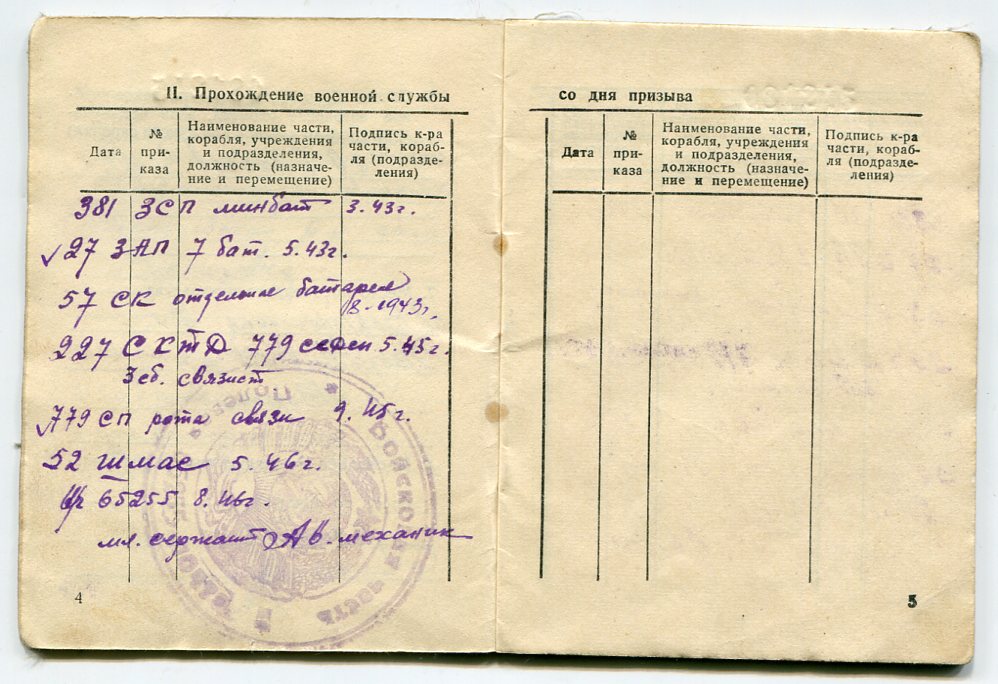 II. Прохождение военной службы
Дата
№ при-каза
Наименование части,
корабля, учреждения
и подразделения,
должность (назначе-
ние и перемещение)
Подпись к-ра
части, кораб-
ля (подразде-
ления)
381 ЗСП минбат 3.43г.
✓27 ЗАП 7 бат. 5.43г.
57 СК отдельные батареи
8-1943г.
227 СКТД 779 5.45г.
связист
✓779 СП рота связи 9.45г.
52 ШМАС 5.46г.
65255 8.46г.
мл. сержант Ав. механик
4
со дня призыва
Дата
№ при-каза
Наименование части,
корабля, учреждения
и подразделения,
должность (назначе-
ние и перемещение)
Подпись к-ра
части, кораб-
ля (подразде-
ления)
5